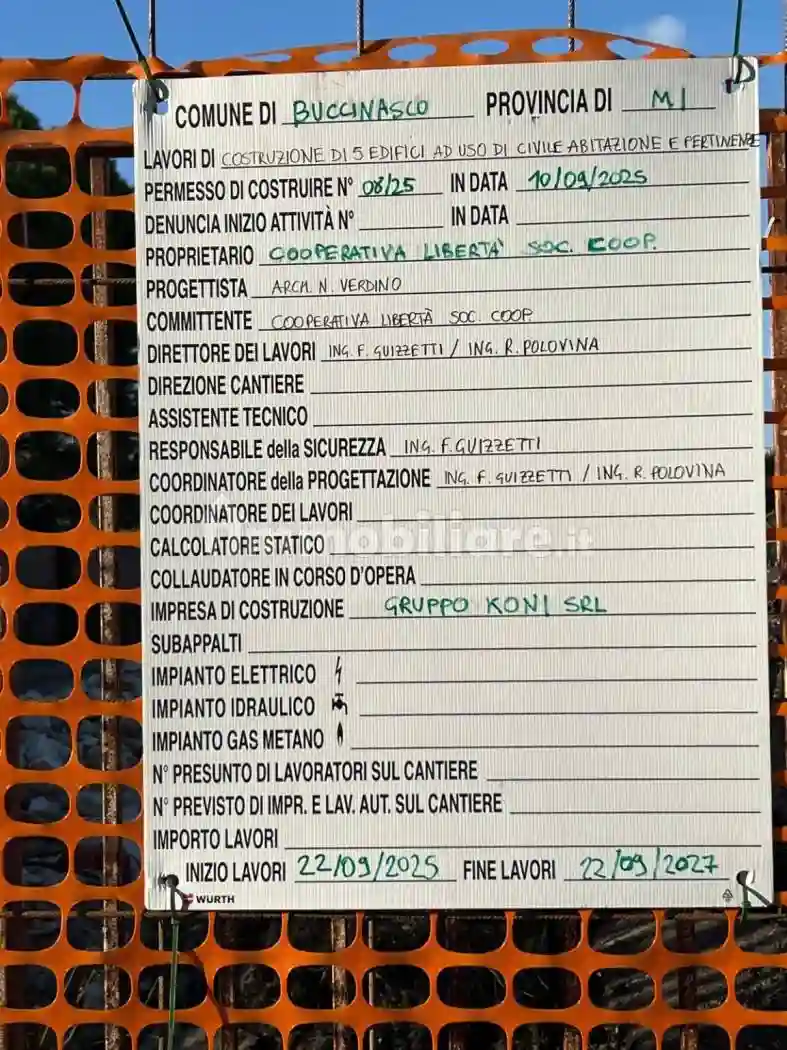 COMUNE DI BUCCINASCO PROVINCIA DI MI
LAVORI DI COSTRUZIONE DI 5 EDIFICI AD USO DI CIVILE ABITAZIONE E PERTINENZE
PERMESSO DI COSTRUIRE N° 08/25 IN DATA 10/09/2025
DENUNCIA INIZIO ATTIVITÀ N° IN DATA
PROPRIETARIO COOPERATIVA LIBERTA' SOC. COOP.
PROGETTISTA ARCH. N. VERDINO
COMMITTENTE COOPERATIVA LIBERTÀ SOC. COOP.
DIRETTORE DEI LAVORI ING. F. GUIZZETTI / ING. R. POLOVINA
DIREZIONE CANTIERE
ASSISTENTE TECNICO
RESPONSABILE della SICUREZZA ING. F. GUIZZETTI
COORDINATORE della PROGETTAZIONE ING. F. GUIZZETTI / ING. R. POLOVINA
COORDINATORE DEI LAVORI
immobiliare.it
CALCOLATORE STATICO
COLLAUDATORE IN CORSO D'OPERA
IMPRESA DI COSTRUZIONE GRUPPO KONI SRL
SUBAPPALTI
IMPIANTO ELETTRICO
IMPIANTO IDRAULICO
IMPIANTO GAS METANO
N° PRESUNTO DI LAVORATORI SUL CANTIERE
N° PREVISTO DI IMPR. E LAV. AUT. SUL CANTIERE
IMPORTO LAVORI
INIZIO LAVORI 22/09/2025 FINE LAVORI 22/09/2027
WURTH